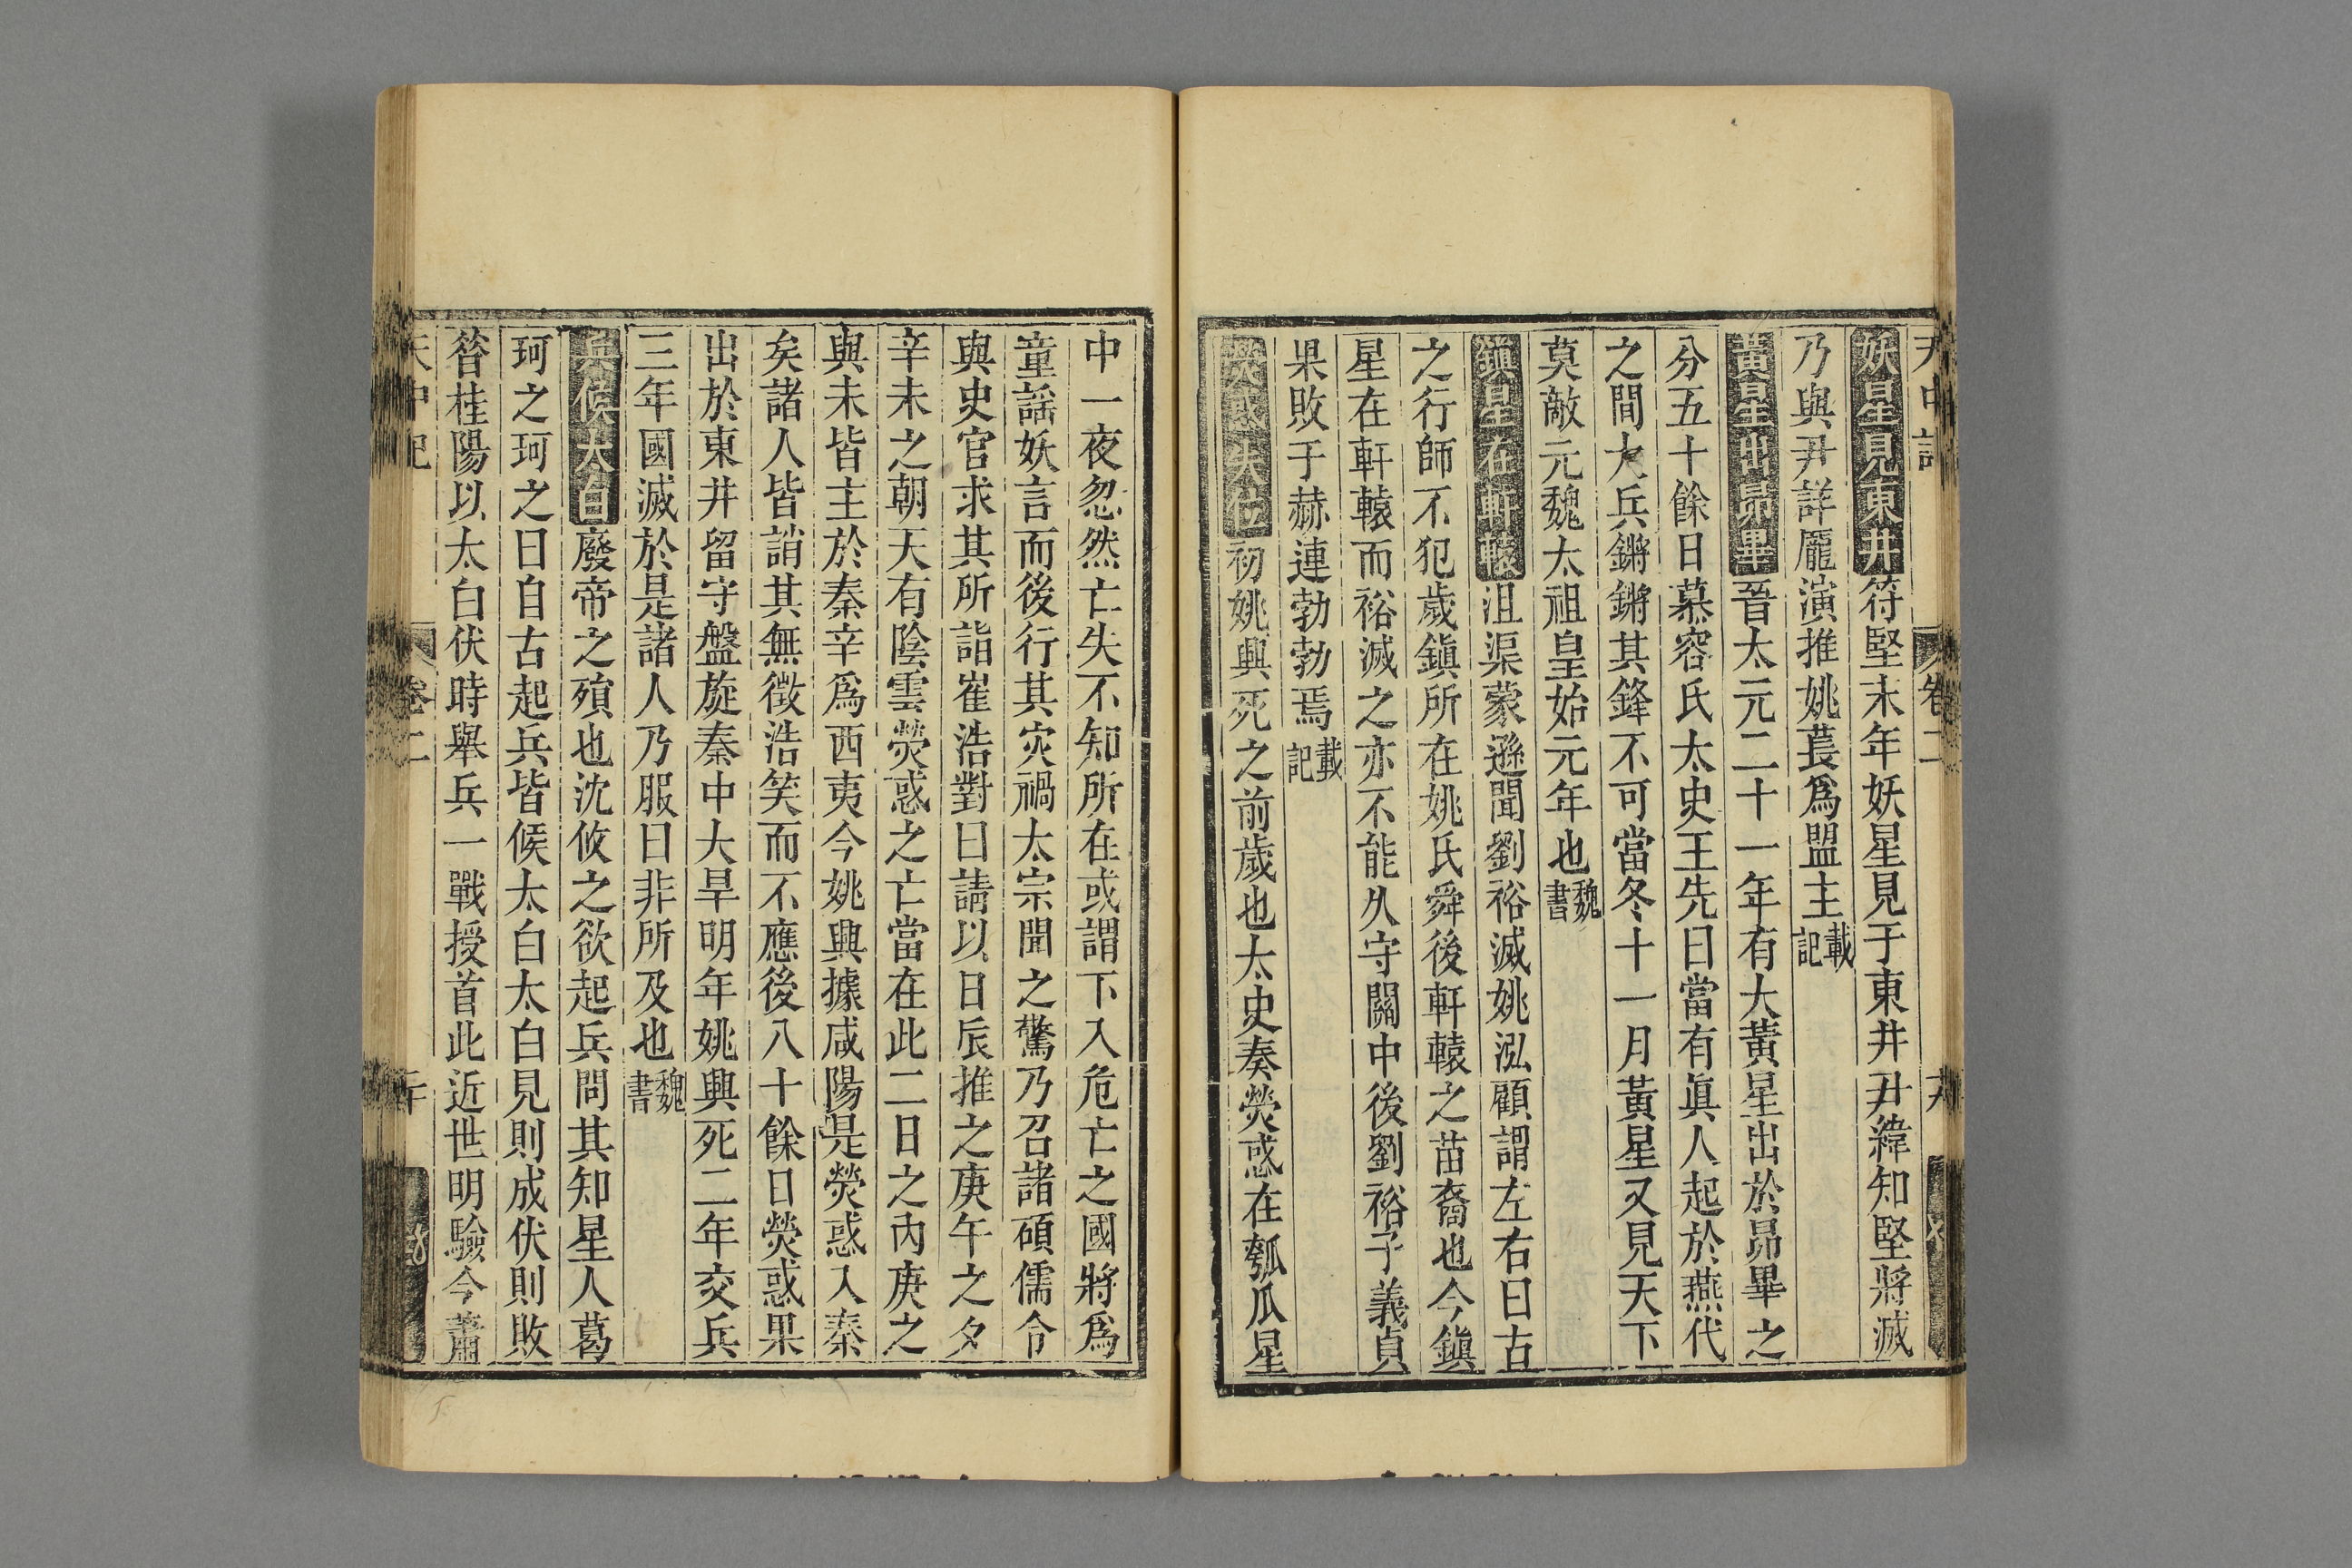 妖星見東井符堅末年妖星見于東井尹緯知堅將滅
乃與尹詳龐演推姚萇爲盟主載記
黃星出昴畢晉太元二十一年有大黃星出於昴畢之
分五十餘日慕容氏太史王先曰當有眞人起於燕代
之間大兵鏘鏘其鋒不可當冬十一月黃星又見天下
莫敵元魏太祖皇始元年也魏書
鎭星在軒轅沮渠蒙遜聞劉裕滅姚泓顧謂左右曰古
之行師不犯歲鎭所在姚氏舜後軒轅之苗裔也今鎭
星在軒轅而裕滅之亦不能久守關中後劉裕子義貞
果敗于赫連勃勃焉載記
熒惑失位初姚興死之前歲也太史奏熒惑在瓠瓜星
中一夜忽然亡失不知所在或謂下入危亡之國將爲
童謠妖言而後行其灾禍太宗聞之驚乃召諸碩儒令
與史官求其所詣崔浩對曰請以日辰推之庚午之夕
辛未之朝天有陰雲熒惑之亡當在此二日之內庚之
與未皆主於秦辛爲西夷今姚興據咸陽是熒惑入秦
矣諸人皆誚其無徵浩笑而不應後八十餘日熒惑果
出於東井留守盤旋秦中大旱明年姚興死二年交兵
三年國滅於是諸人乃服曰非所及也魏書
兵候太白廢帝之殞也沈攸之欲起兵問其知星人葛
珂之珂之曰自古起兵皆候太白太白見則成伏則敗
昝桂陽以太白伏時舉兵一戰授首此近世明驗今蕭
天中記
卷二
二十